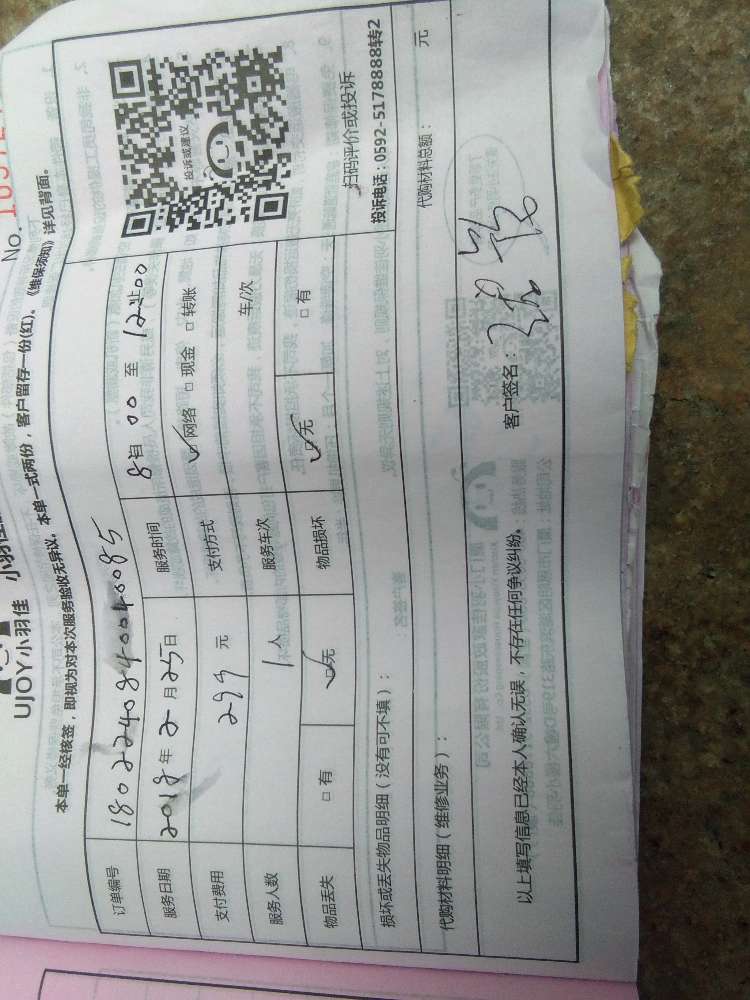 No.
UJOY小羽佳 小羽佳
本单一经核签，即视为对本次服务验收无异议。本单一式两份，客户留存一份(红)。《维保须知》详见背面。
订单编号 1802240840040085
服务日期 2018年2月25日 服务时间 8:00 至 12:00
支付费用 299 元 支付方式 ☑网络 □现金 □转账
服务人数 1人 服务车次 车/次
物品丢失 □有 ☑无 物品损坏 ☑无 □有
投诉或建议
扫码评价或投诉
投诉电话：0592-5178888转2
损坏或丢失物品明细（没有可不填）：
代购材料明细（维修业务）： 代购材料总额： 元
以上填写信息已经本人确认无误，不存在任何争议纠纷。 客户签名：